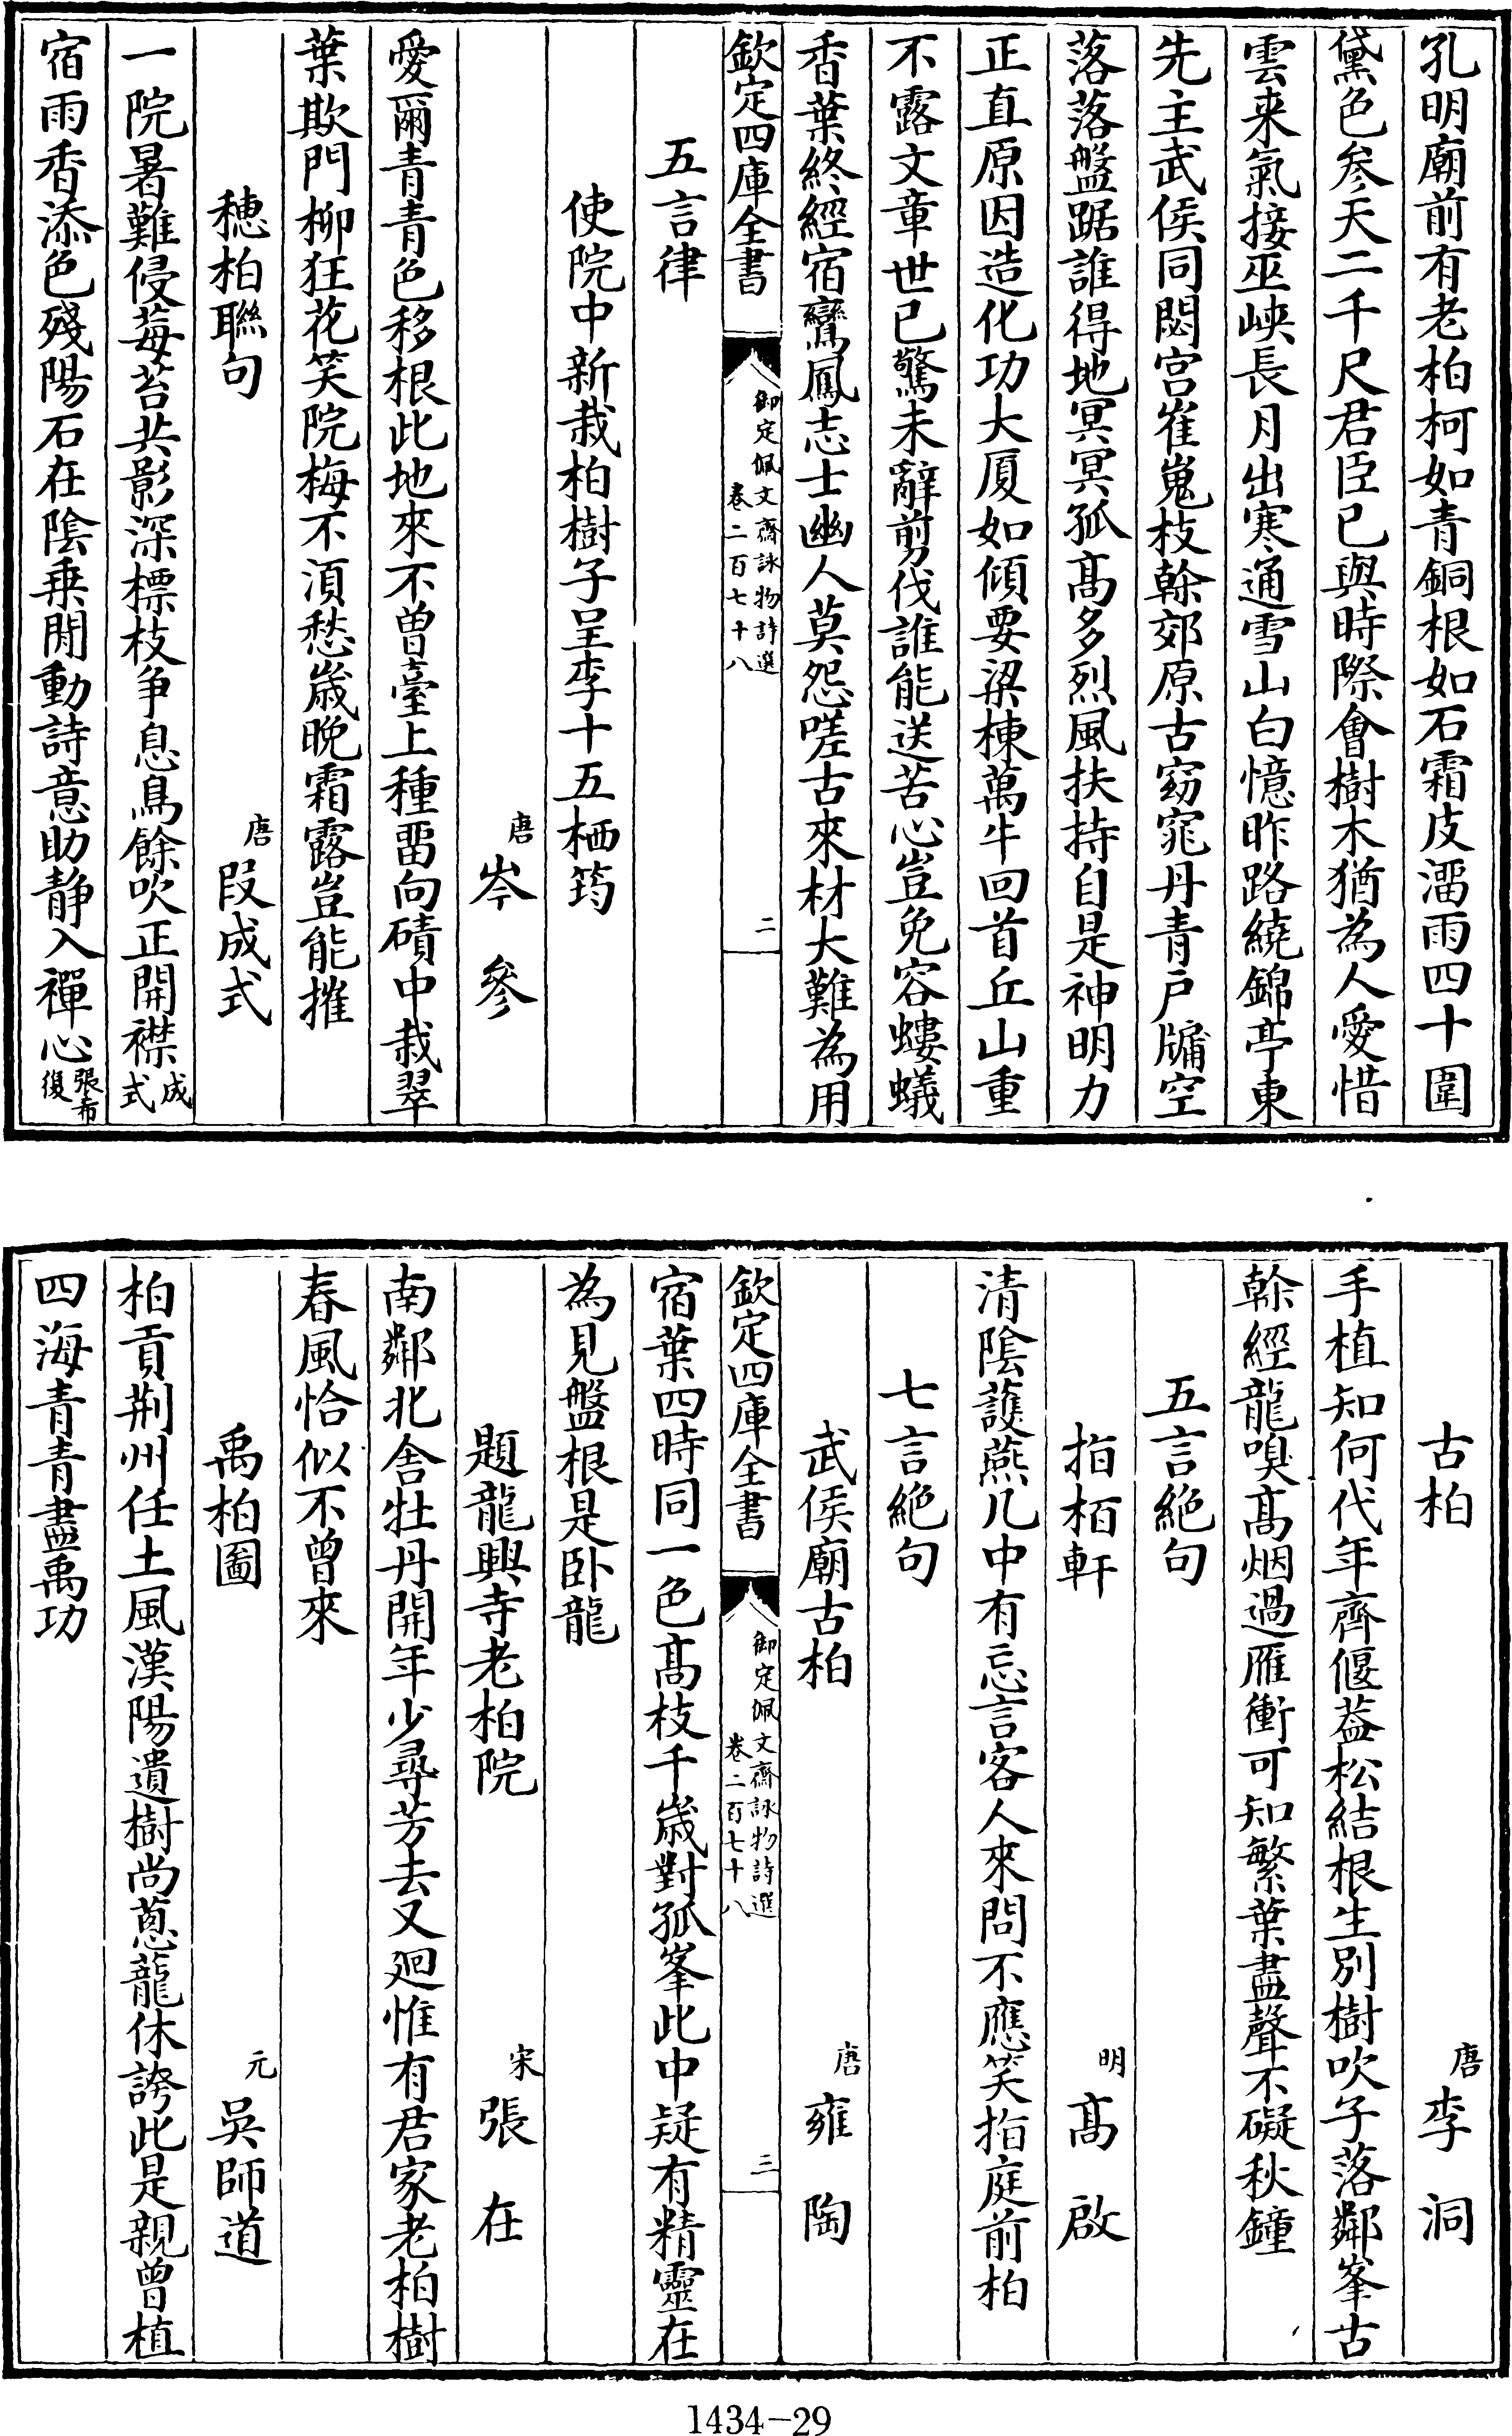 孔明廟前有老柏柯如青銅根如石霜皮溜雨四十圍
黛色參天二千尺君臣已與時際會樹木猶為人愛惜
雲来氣接巫峽長月出寒通雪山白憶昨路繞錦亭東
先主武侯同閟宫崔嵬枝榦郊原古窈窕丹青戸牖空
落落盤踞誰得地冥冥孤髙多烈風扶持自是神明力
正直原因造化功大厦如傾要梁棟萬牛回首丘山重
不露文章世已驚未辭剪伐誰能送苦心豈免容螻蟻
香葉終經宿鸞鳳志士幽人莫怨嗟古來材大難為用
欽定四庫全書
御定佩文齋詠物詩選
卷二百七十八
二
五言律
使院中新栽柏樹子呈李十五栖筠
唐 岑 參
愛爾青青色移根此地來不曾臺上種畱向磧中栽翠
葉欺門柳狂花笑院梅不須愁嵗晚霜露豈能摧
穗柏聯句
唐 段成式
一院暑難侵莓苔共影深標枝争息鳥餘吹正開襟成式
宿雨香添色殘陽石在陰乗閒動詩意助静入禪心張希復
古柏
唐 李 洞
手植知何代年齊偃葢松結根生別樹吹子落鄰峯古
榦經龍嗅髙烟過雁衝可知繁葉盡聲不礙秋鐘
五言絶句
指栢軒
明 髙 啟
清陰護燕几中有忘言客人來問不應笑指庭前柏
七言絶句
武侯廟古柏
唐 雍 陶
欽定四庫全書
御定佩文齋詠物詩選
卷二百七十八
三
宿葉四時同一色髙枝千嵗對孤峯此中疑有精靈在
為見盤根是卧龍
題龍興寺老柏院
宋 張 在
南鄰北舍牡丹開年少尋芳去又廻惟有君家老柏樹
春風恰似不曾來
禹柏圖
元 吳師道
柏貢荆州任土風漢陽遺樹尚蔥蘢休誇此是親曾植
四海青青盡禹功
1434-29